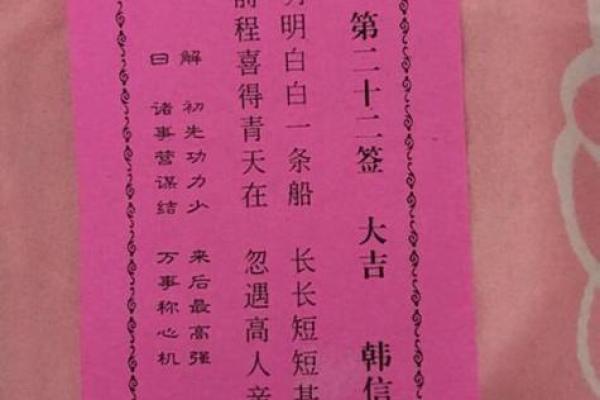 第二十二签 大吉 韩信
明白白一条船 长长短短
前程喜得青天在 忽遇高人亲
解 初先功力少 来后最高强
曰 诸事营谋结 万事称心机